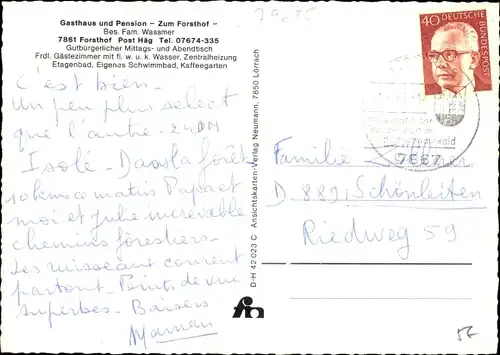 Gasthaus und Pension – Zum Forsthof –
Bes. Fam. Wassmer
7861 Forsthof Post Häg Tel. 07674-335
Gutbürgerlicher Mittags- und Abendtisch
Frdl. Gästezimmer mit fl. w. u. k. Wasser, Zentralheizung
Etagenbad, Eigenes Schwimmbad, Kaffeegarten
C'est bien.
Un peu plus select
que l'autre - 24 DM
Isolé - Dans la forêt
10 kms ce matin Papa et
moi et Julie increvable
chemins forestiers -
Les ruisseaux courent
partout - Points de vue
superbes - Baisers
Maman
D-H 42 023 C Ansichtskarten-Verlag Neumann, 7850 Lörrach
40
DEUTSCHE
BUNDESPOST
7867
Familie
D. 882 Schönleiten
Riedweg 59